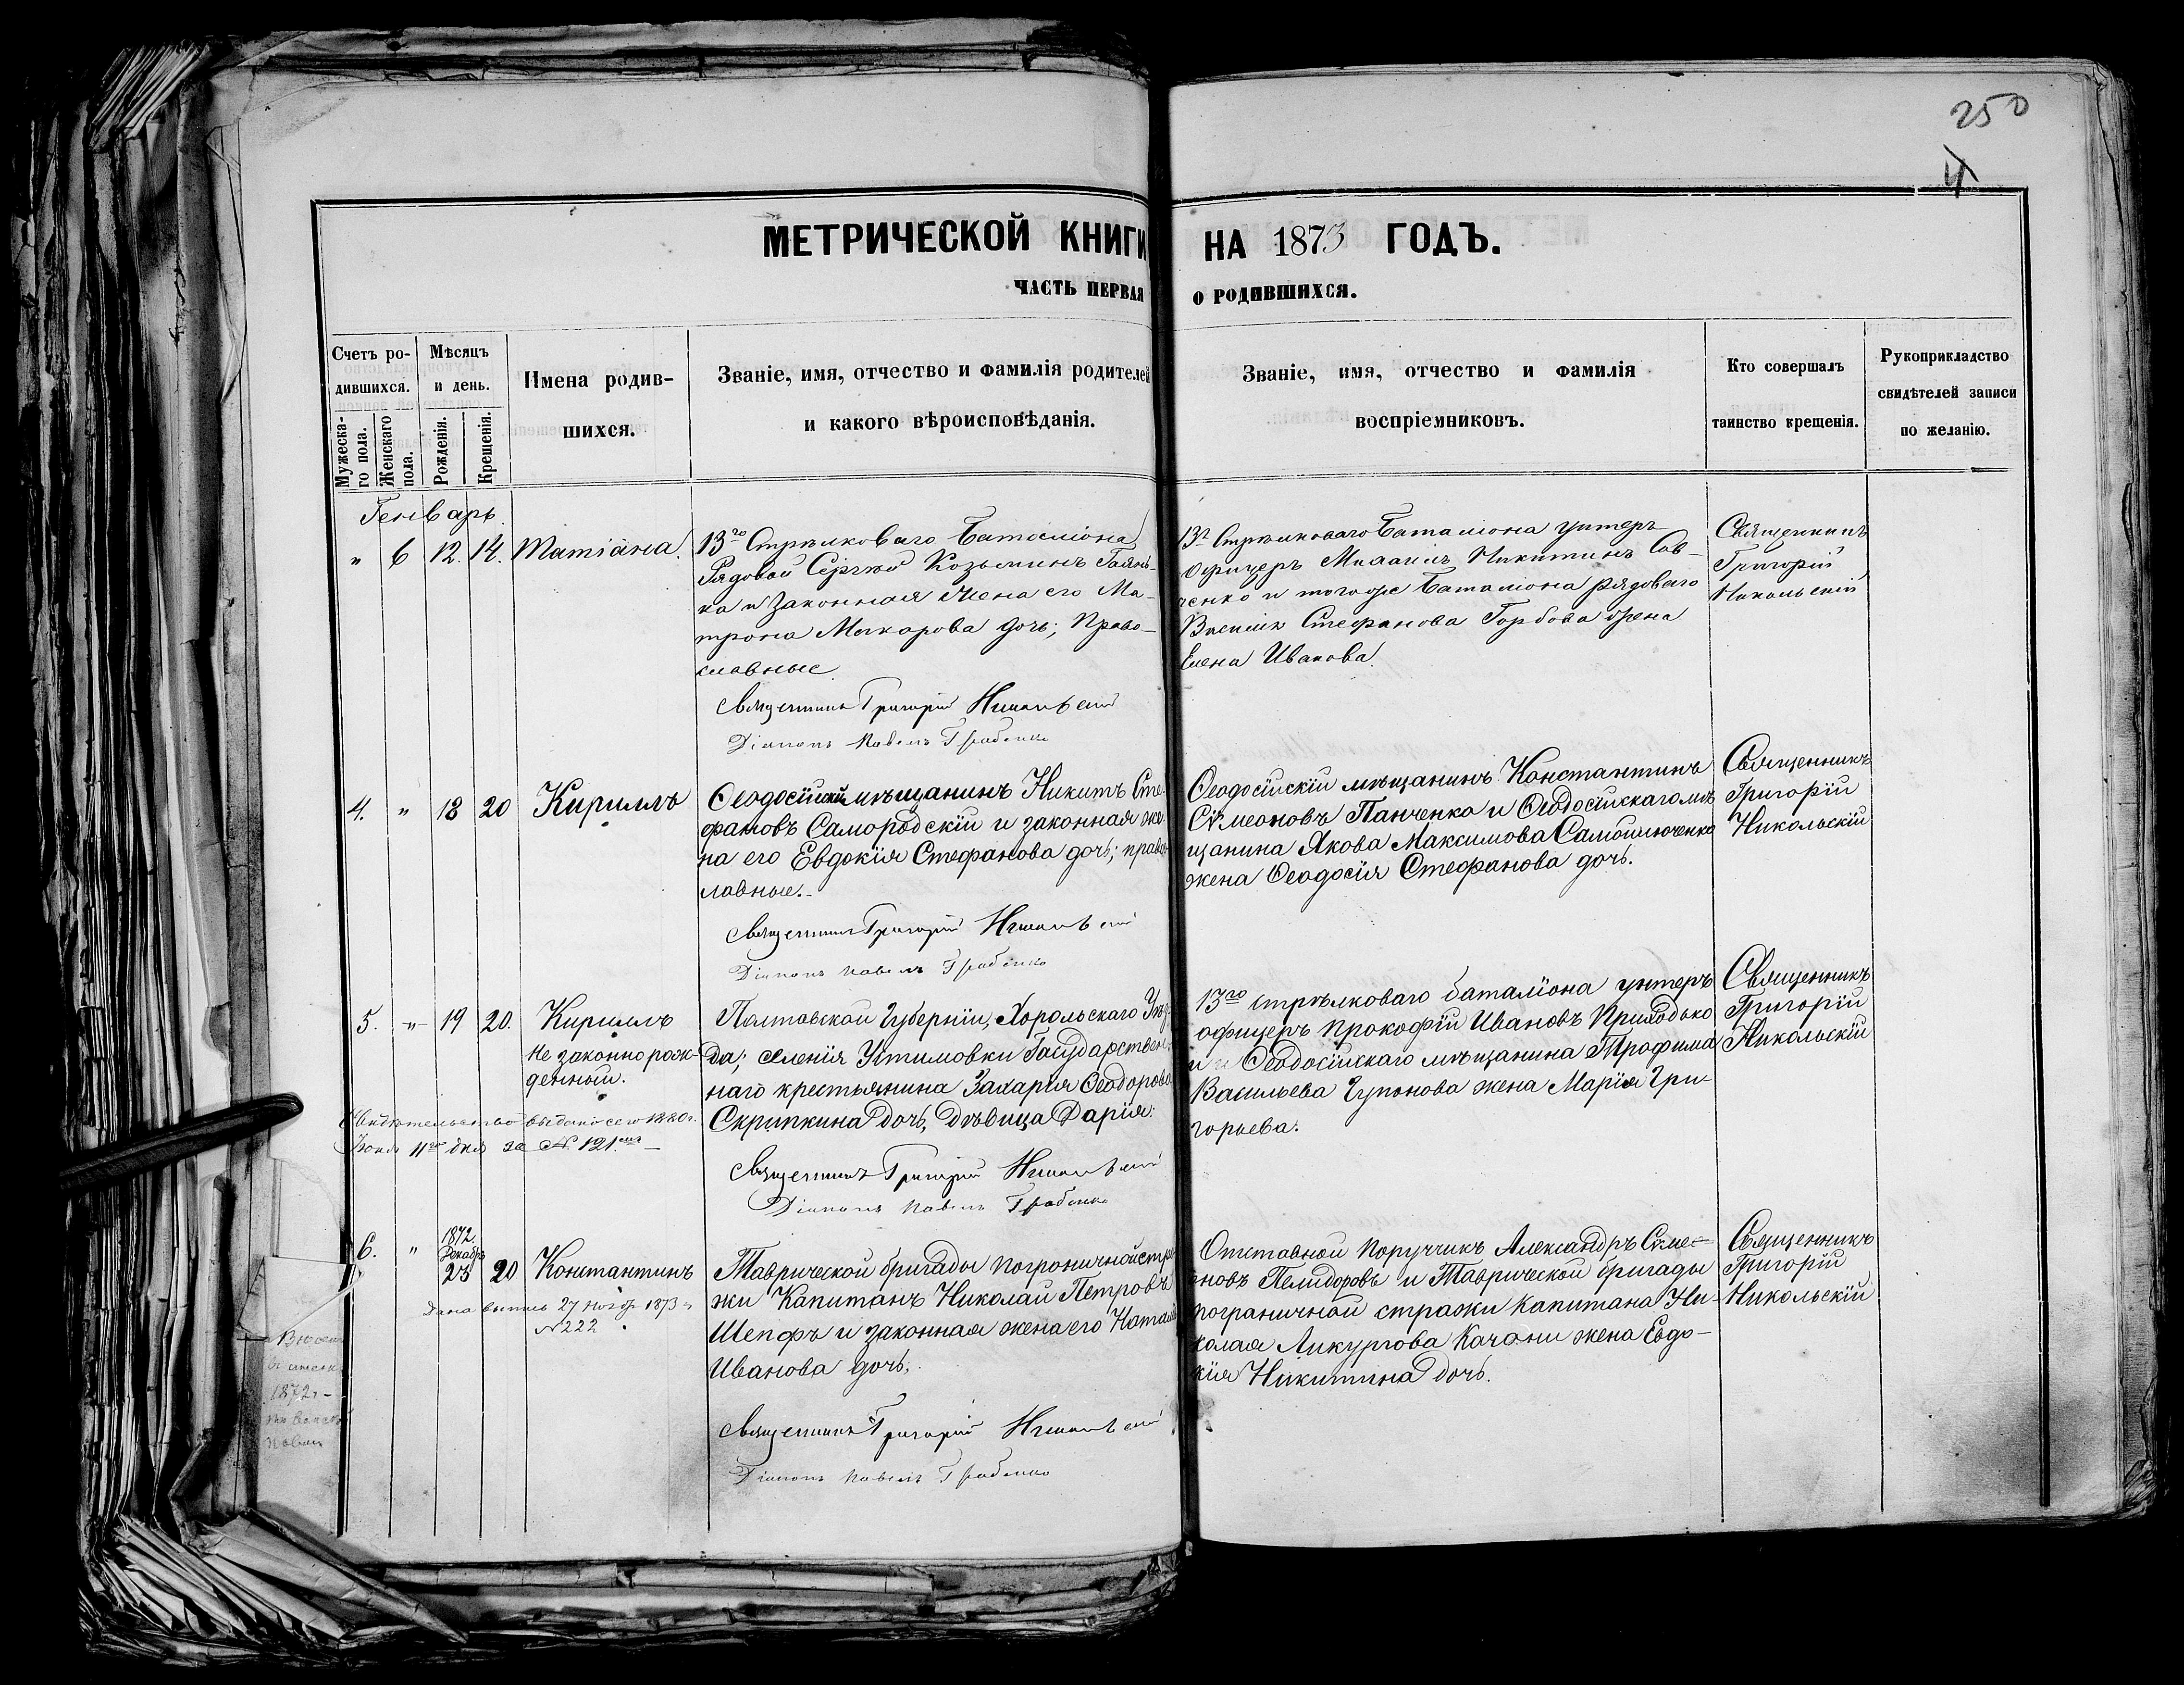 250
4
МЕТРИЧЕСКОЙ КНИГИ НА 1873 ГОДЪ.
ЧАСТЬ ПЕРВАЯ О РОДИВШИХСЯ.
Счетъ родившихся.
Мужескаго пола.
Женскаго пола.
Мѣсяцъ и день.
Рожденія.
Крещенія.
Имена родив-
шихся.
Званіе, имя, отчество и фамилія родителей
и какого вѣроисповѣданія.
Званіе, имя, отчество и фамилія
воспріемниковъ.
Кто совершалъ
таинство крещенія.
Рукоприкладство
свидѣтелей записи
по желанію.
Генварь
" 6 12. 14. Татіана.
13го Стрѣлковаго Баталіона
Рядовой Сергѣй Козьминъ
ка и законная жена его Ма-
трона Макарова дочь; Право-
славные.
Священникъ Григорій Никольскій
Діаконъ Павелъ
13г Стрѣлковаго Баталіона унтеръ
офицеръ Михаилъ Никитинъ Сав-
ченко и тогоже Баталіона рядоваго
Василія Стефанова Горбова жена
Елена Иванова.
Священникъ
Григорій
Никольскій
4. " 18 20 Кириллъ
Ѳеодосійскій мѣщанинъ Никитъ Сте-
фановъ Самородскій и законная же-
на его Евдокія Стефанова дочь; право-
лавные.-
Священникъ Григорій Никольскій
Діаконъ Павелъ
Ѳеодосійскій мѣщанинъ Константинъ
Сѵмеоновъ Панченко и Ѳеодосійскаго мѣ-
щанина Якова Максимова Самойлюченко
жена Ѳеодосія Стефанова дочь.
Священникъ
Григорій
Никольскій
5. " 19 20. Кириллъ
Не законно рож-
денный.
Свидѣтельство выдано сего 1880г.
11го дня за № 121.мъ —
Полтавской Губерніи, Хорольскаго Уѣз-
да; селенія Устимовки Государствен-
наго крестьянина Захарія Ѳеодорова
Скрипкина дочь, дѣвица Дарія.
Священникъ Григорій Никольскій
Діаконъ Павелъ
13го стрѣлковаго баталіона унтеръ
офицеръ Прокофій Ивановъ Приходько
и Ѳеодосійскаго мѣщанина Трофима
Васильева Чупонова жена Марія Гри-
горьева.
Священникъ
Григорій
Никольскій
6. " 1872. Декабрь 23 20 Константинъ
Дана выпись 27 1873 г
№ 222
Таврической бригады пограничной стра-
жи Капитанъ Николай Петровъ
Шепфъ и законная жена его Наталія
Иванова дочь.
Священникъ Григорій Никольскій
Діаконъ Павелъ
Отставной Поручикъ Александръ Сѵме-
оновъ Пелидоровъ и Таврической бригады
пограничной стражи капитана Ни-
колая Ликургова Качони жена Евдо-
кія Никитина дочь.
Священникъ
Григорій
Никольскій
1872г -